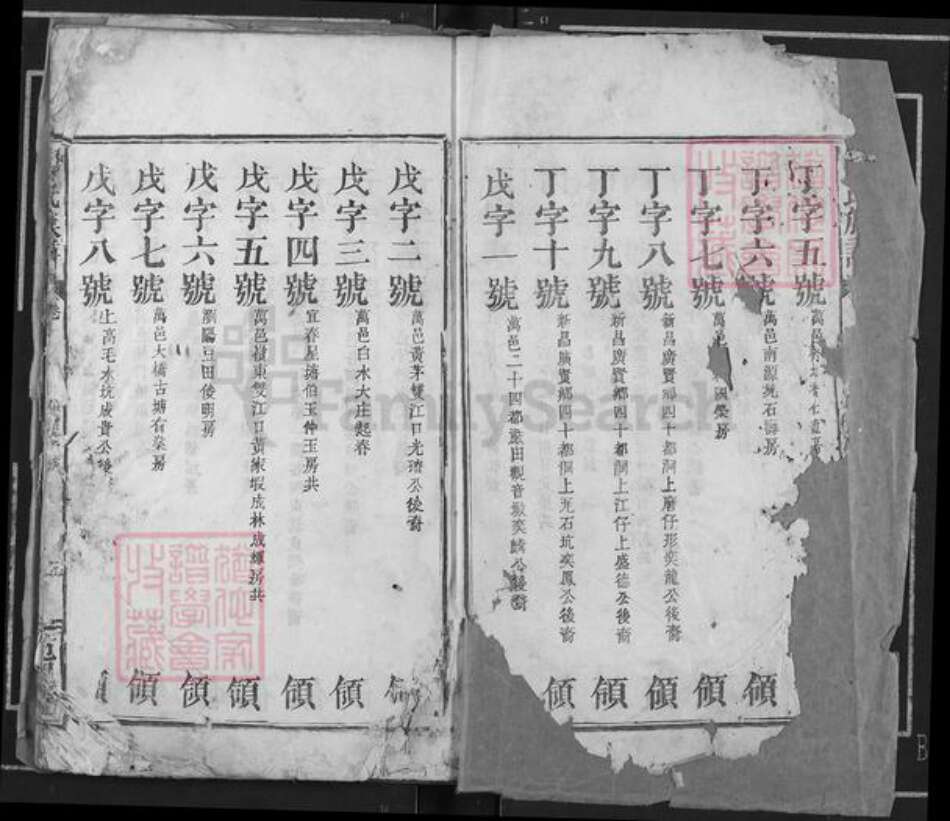 丁字五號 萬邑
丁字六號 萬邑南源坑石 房 領
丁字七號 萬邑 國榮房 領
丁字八號 新昌廣賢鄉四十都洞上磨仔形奕龍公後裔 領
丁字九號 新昌廣賢鄉四十都洞上江仔上盛德公後裔 領
丁字十號 新昌廣賢鄉四十都洞上瓦石坑奕鳳公後裔 領
戊字一號 萬邑二十四都 田觀音 奕麟公後裔
戊字二號 萬邑黃茅雙江口光 公後裔
戊字三號 萬邑白水大庄起春 領
戊字四號 宜春星塘伯玉仲玉房共 領
戊字五號 萬邑 東雙江口黃家 成林成輝房共 領
戊字六號 瀏陽豆田俊明房 領
戊字七號 萬邑大橋古塘有 房 領
戊字八號 上高毛水坑成貴公後
FamilySearch
譜學會
收藏